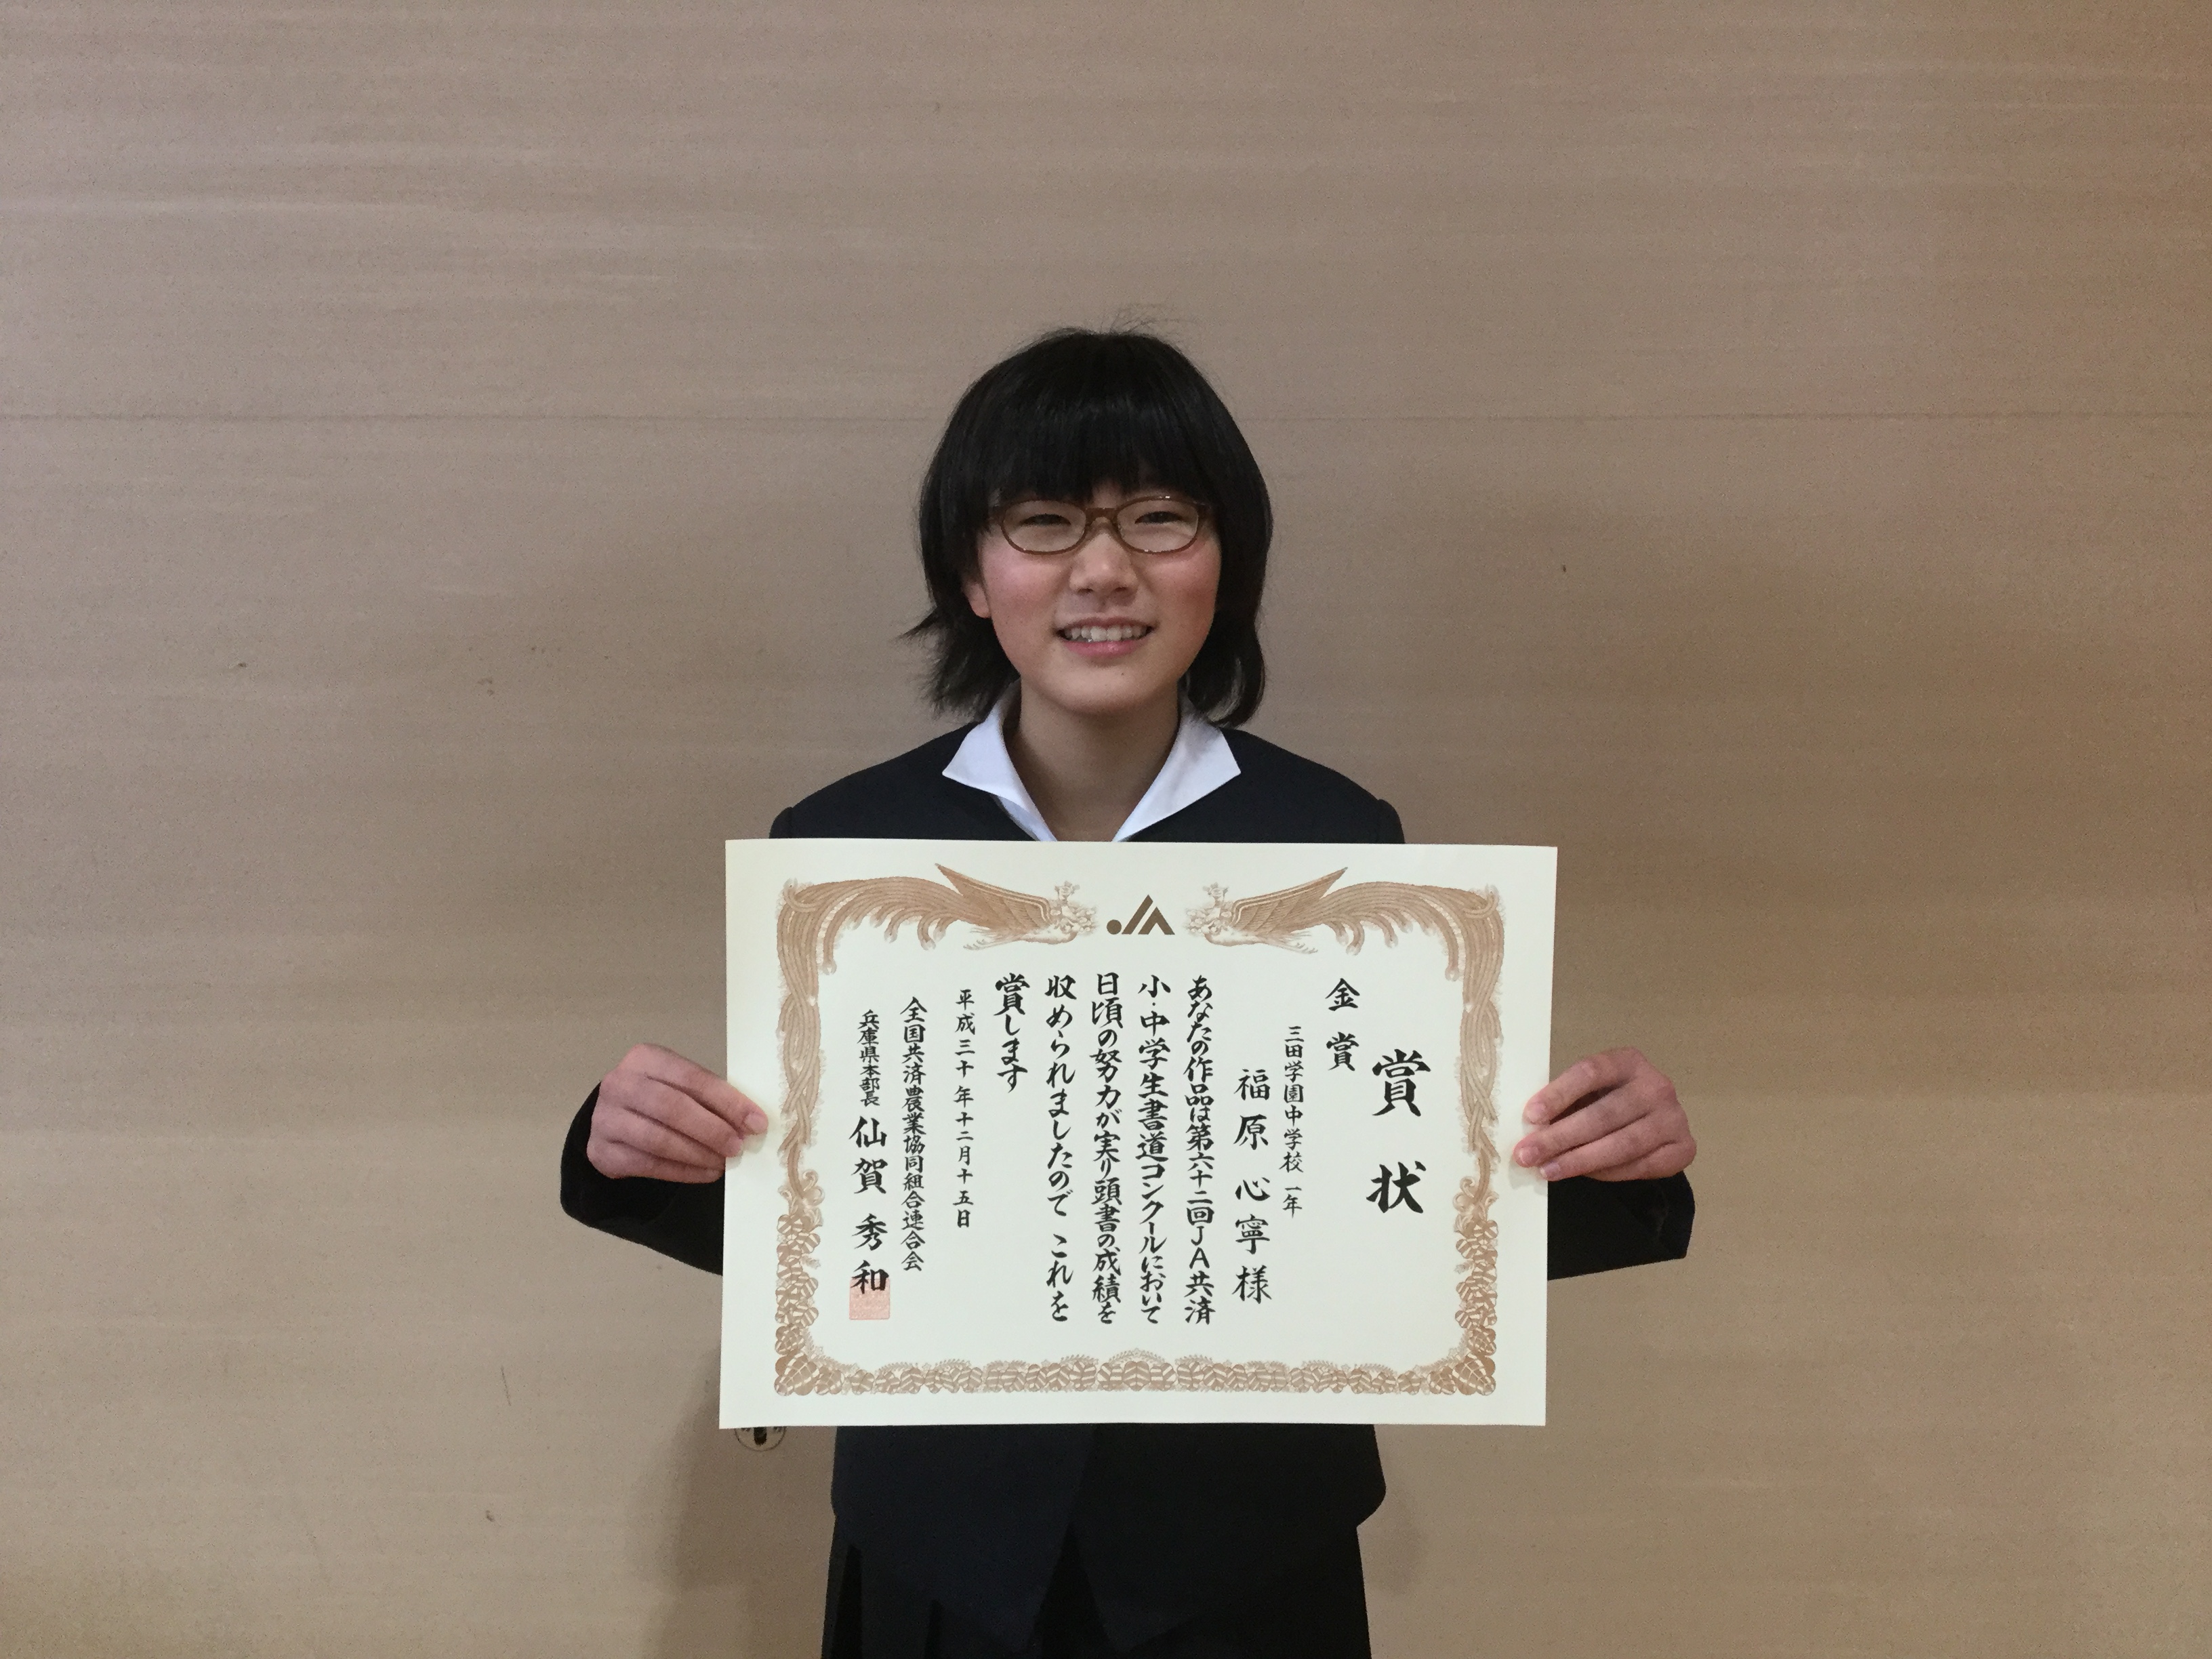 賞状
金賞
三田学園中学校 一年
福原心寧様
あなたの作品は第六十二回JA共済
小・中学生書道コンクールにおいて
日頃の努力が実り頭書の成績を
収められましたので これを
賞します
平成三十年十二月十五日
全国共済農業協同組合連合会
兵庫県本部長 仙賀秀和